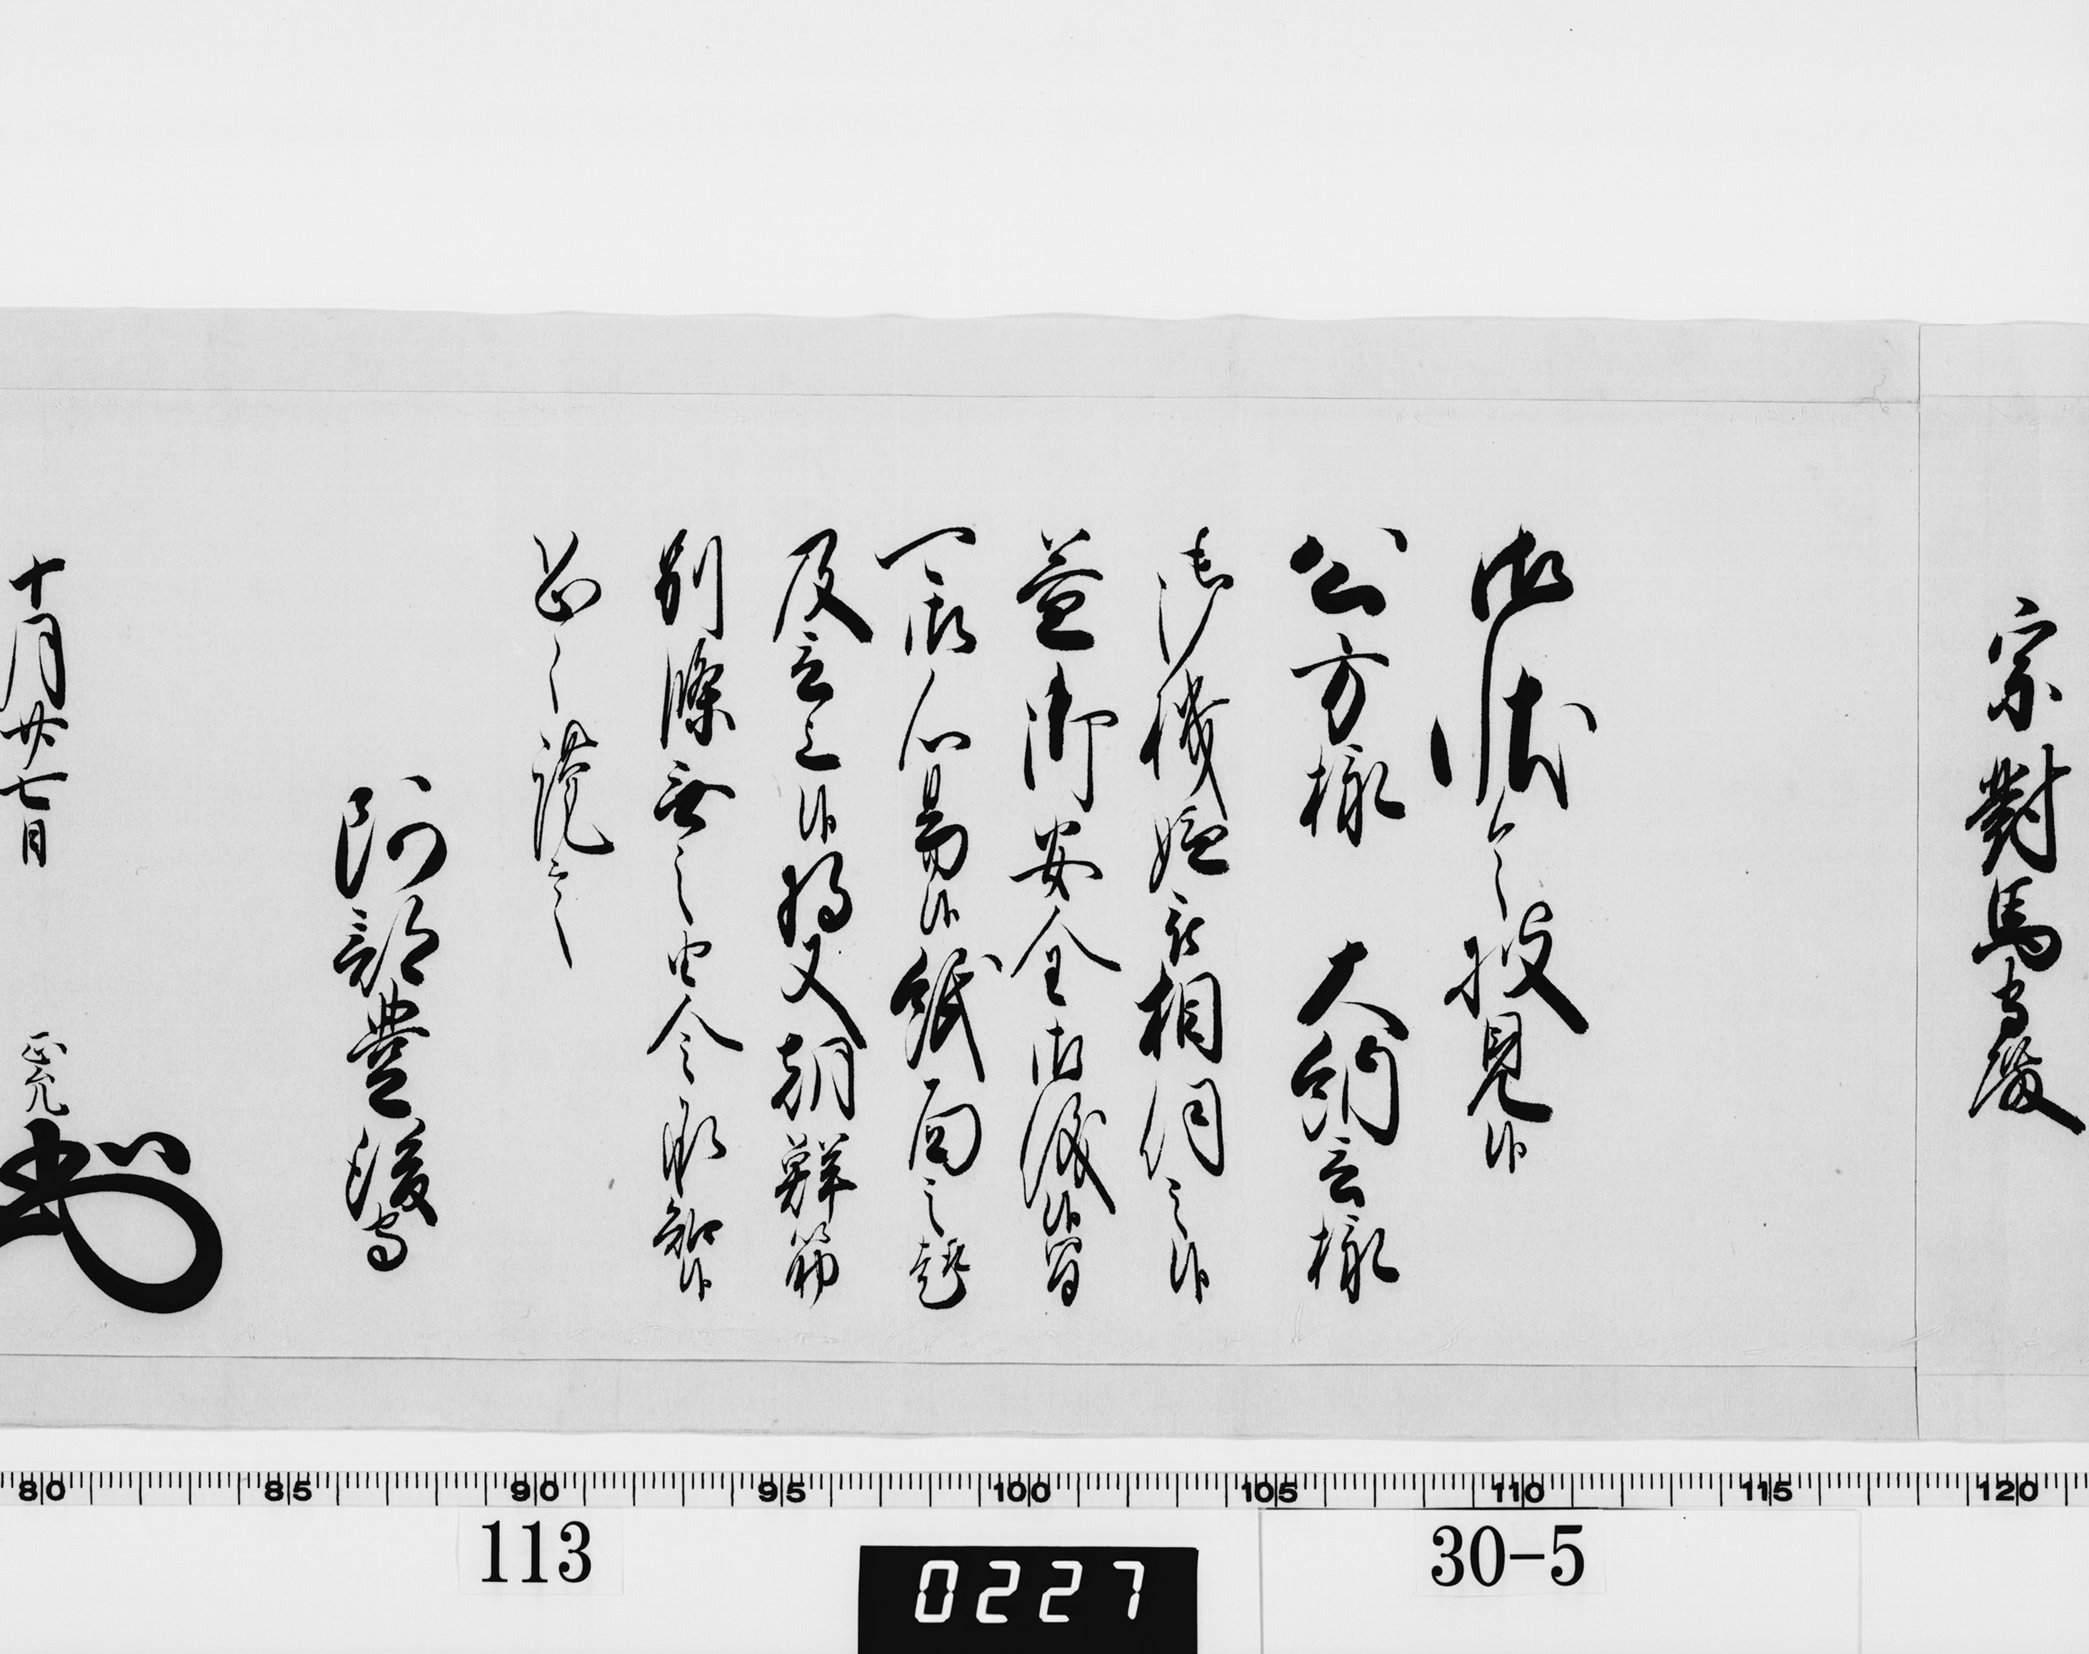 宗對馬守殿
御状令披見候
公方様 大納言様
御機嫌被相伺之候
益御安全御儀候間
可御心易候紙面之趣
及言上候将又朝鮮筋
別條無之由令承知候
恐々謹言
阿部豊後守
十月廿七日 正允
80 85 90 95 100 105 110 115 120
113 30-5
0227